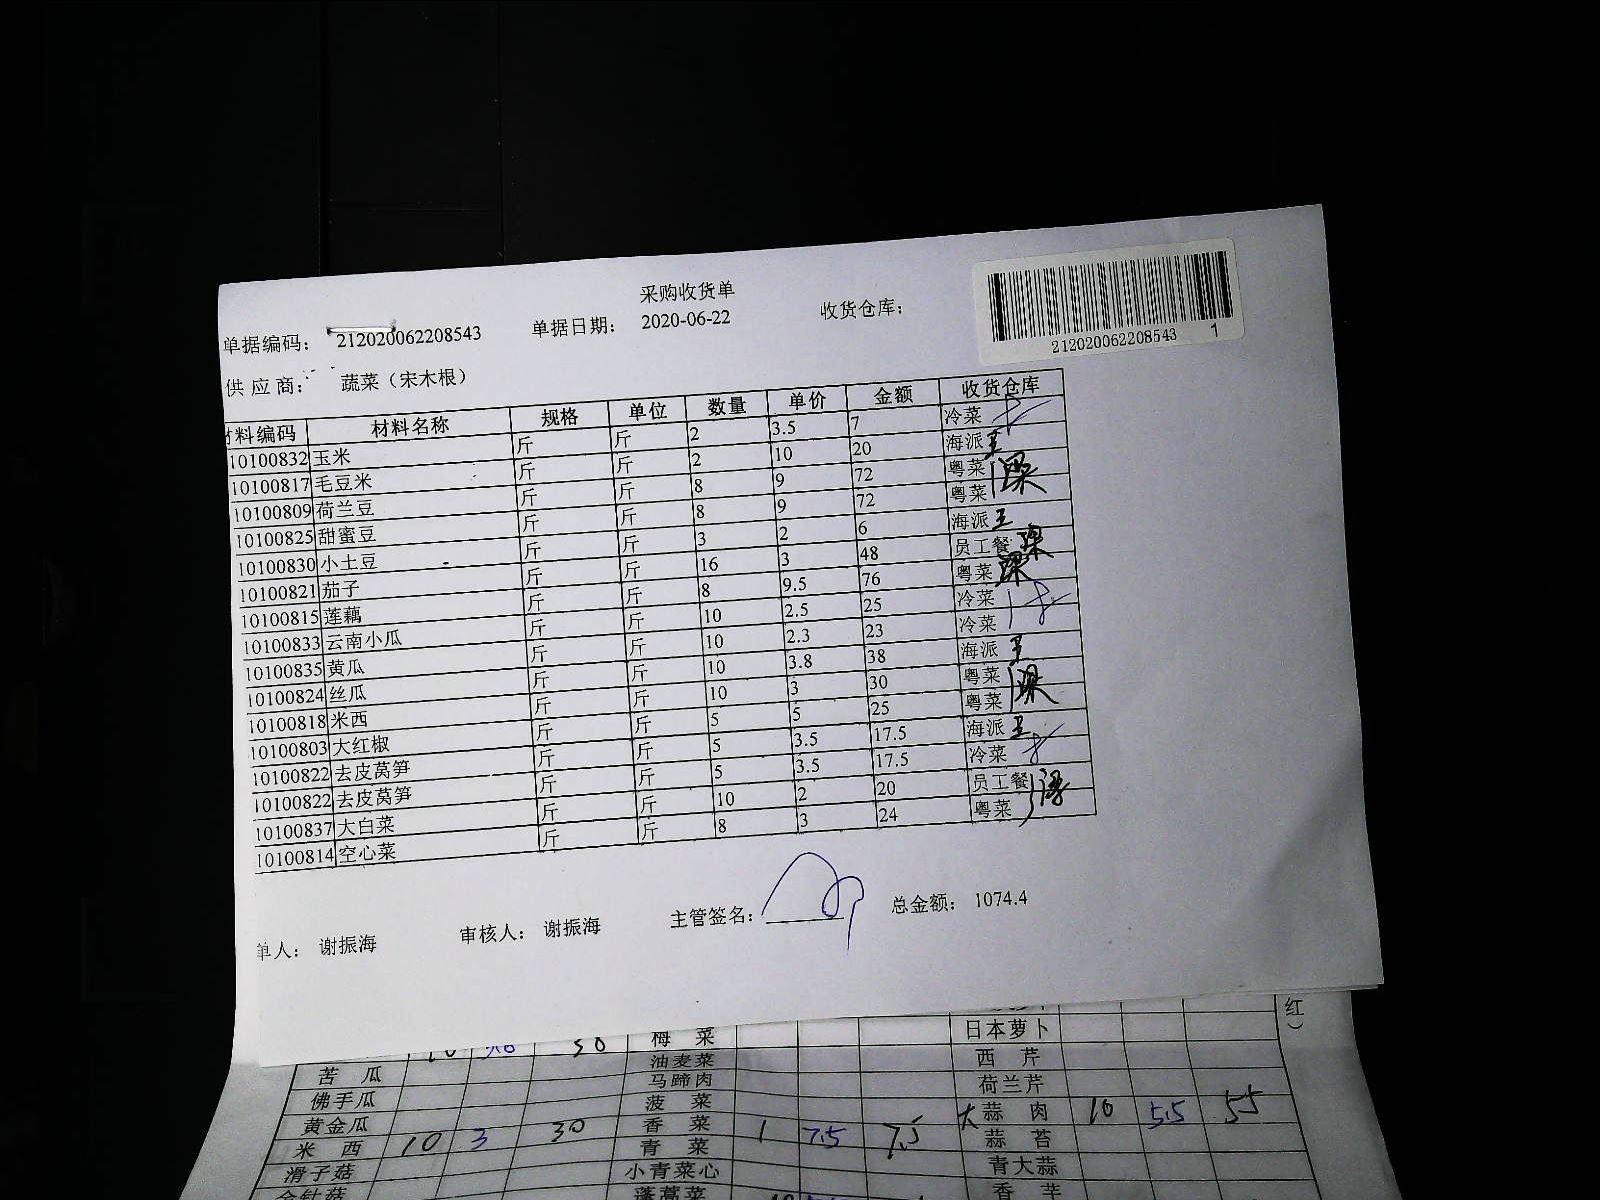 采购收货单
单据编码： 212020062208543 单据日期： 2020-06-22 收货仓库：
212020062208543 1
供应商： 蔬菜（宋木根）
材料编码 材料名称 规格 单位 数量 单价 金额 收货仓库
10100832 玉米 斤 斤 2 3.5 7 冷菜
10100817 毛豆米 斤 斤 2 10 20 海派 王
10100809 荷兰豆 斤 斤 8 9 72 粤菜
10100825 甜蜜豆 斤 斤 8 9 72 粤菜 梁
10100830 小土豆 斤 斤 3 2 6 海派 王
10100821 茄子 斤 斤 16 3 48 员工餐 梁
10100815 莲藕 斤 斤 8 9.5 76 粤菜 梁
10100833 云南小瓜 斤 斤 10 2.5 25 冷菜
10100835 黄瓜 斤 斤 10 2.3 23 冷菜
10100824 丝瓜 斤 斤 10 3.8 38 海派 王
10100818 米西 斤 斤 10 3 30 粤菜
10100803 大红椒 斤 斤 5 5 25 粤菜 梁
10100822 去皮莴笋 斤 斤 5 3.5 17.5 海派 王
10100822 去皮莴笋 斤 斤 5 3.5 17.5 冷菜
10100837 大白菜 斤 斤 10 2 20 员工餐 梁
10100814 空心菜 斤 斤 8 3 24 粤菜
单人： 谢振海 审核人： 谢振海 主管签名： 总金额： 1074.4
红）
30 梅菜 日本萝卜
苦瓜 油麦菜 西芹
佛手瓜 马蹄肉 荷兰芹
黄金瓜 菠菜 大蒜肉 10 5.5 55
米西 10 3 30 香菜 1 7.5 7.5 蒜苔
滑子菇 青菜 青大蒜
金针菇 小青菜心 香芋
蓬蒿菜